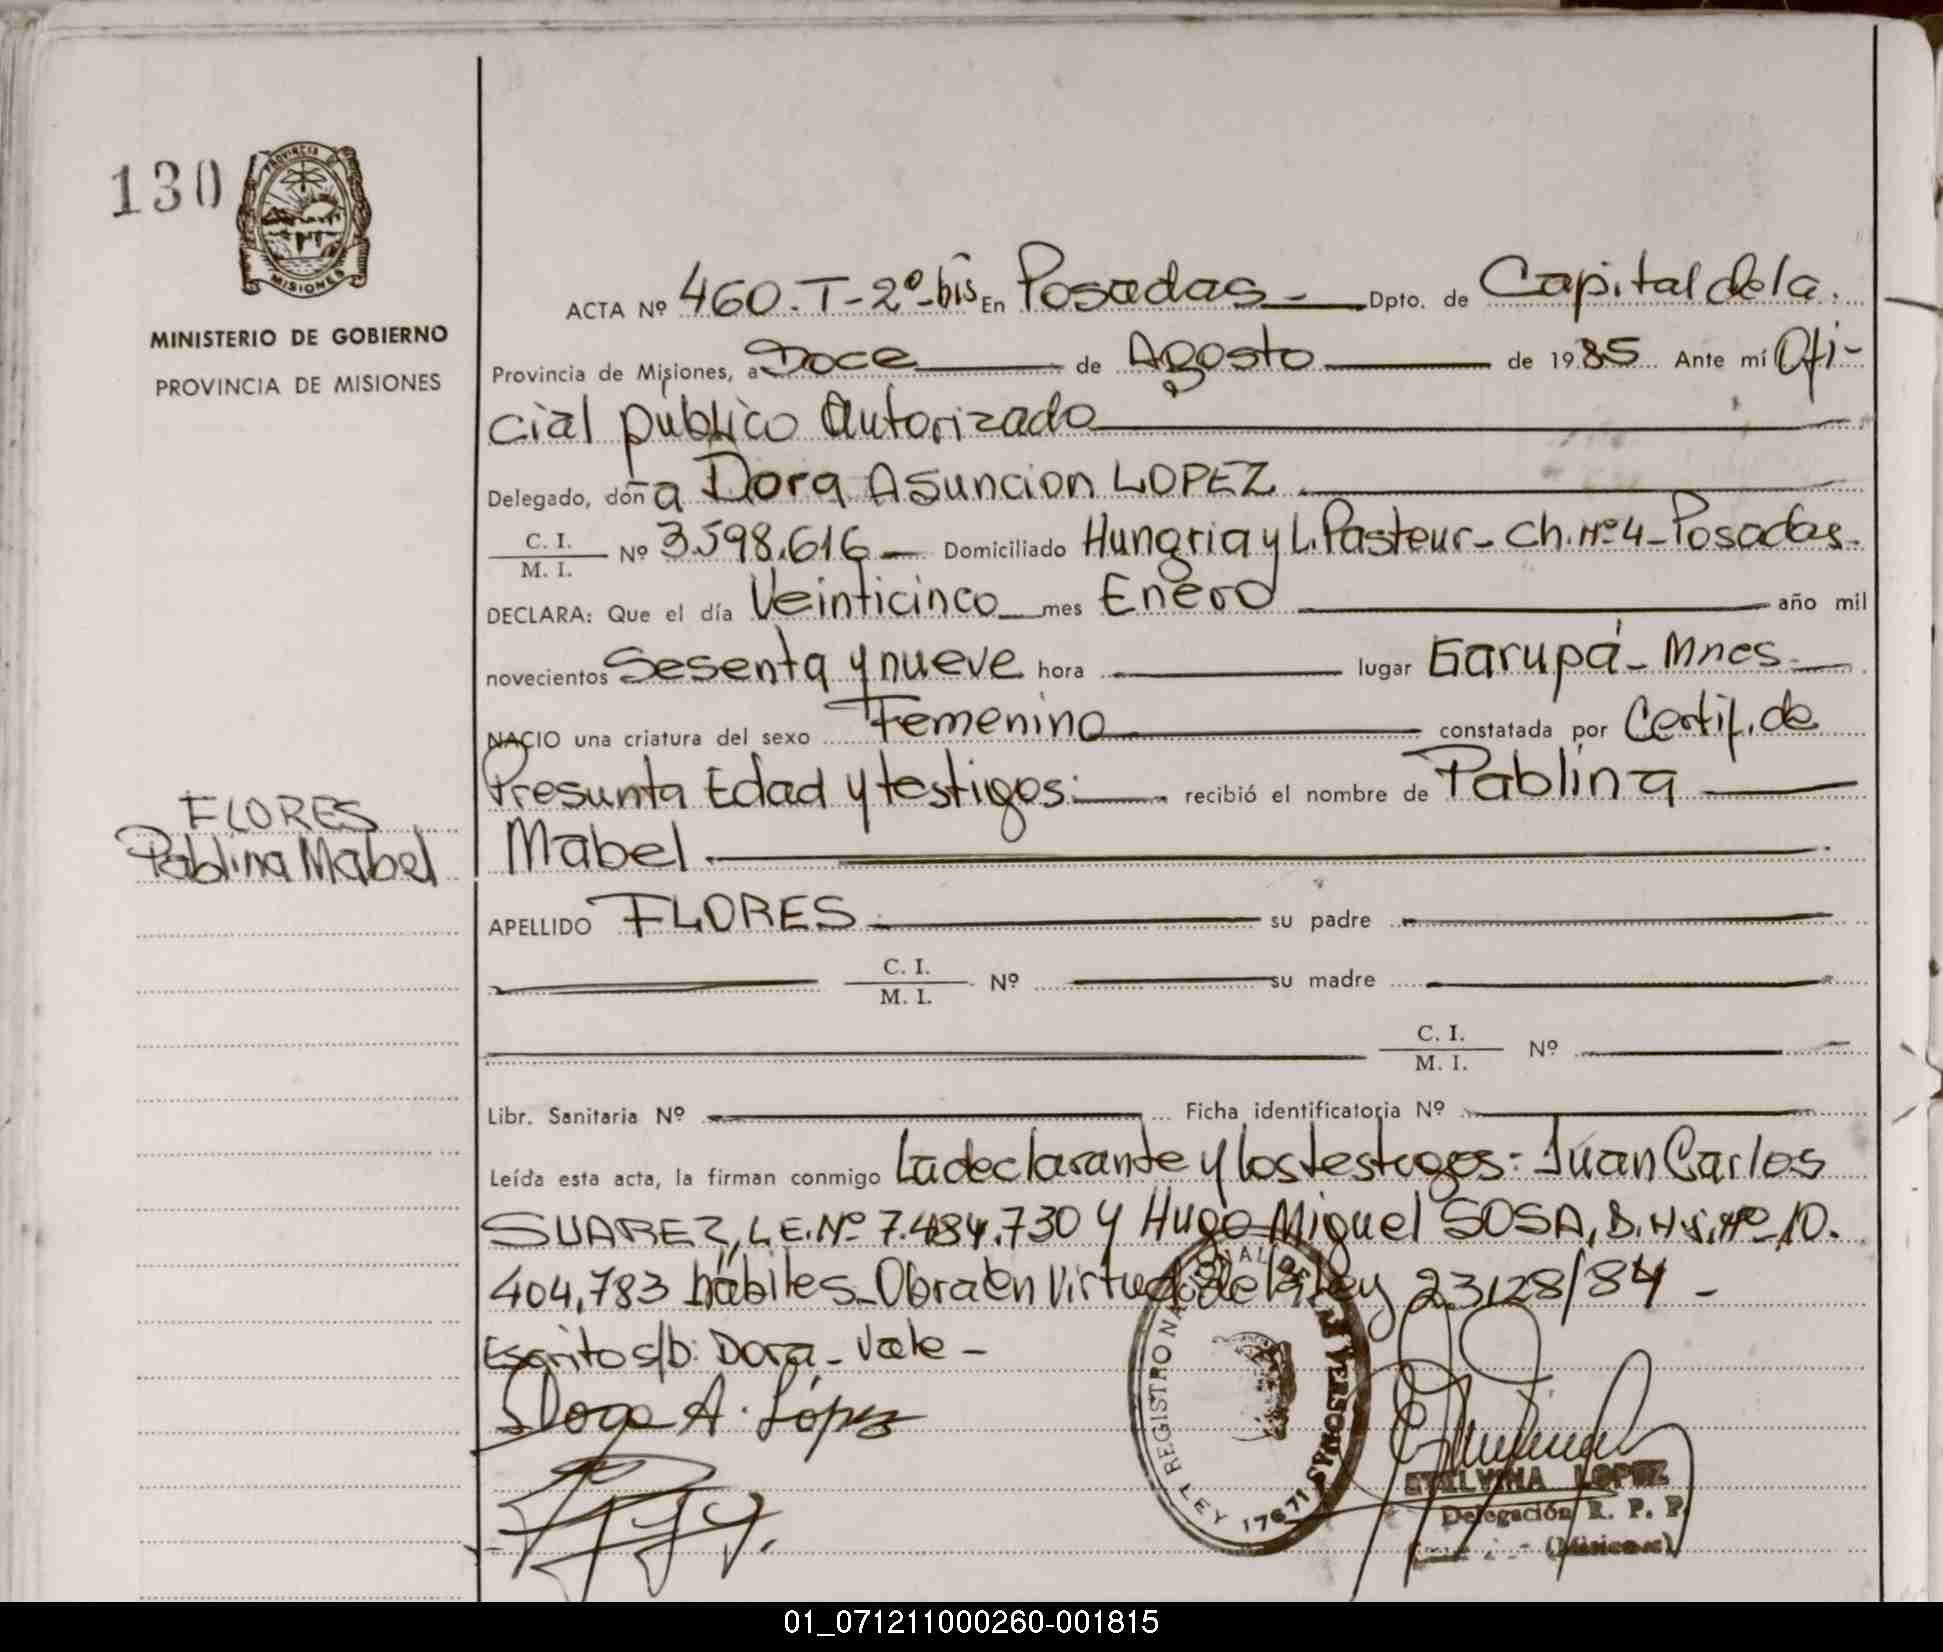 130
PROVINCIA DE
MISIONES
MINISTERIO DE GOBIERNO
PROVINCIA DE MISIONES
FLORES
Pablina Mabel
ACTA Nº 460.T-2º-bis En Posadas Dpto. de Capital de la
Provincia de Misiones, a Doce de Agosto de 1985 Ante mí Ofi-
cial público autorizado
Delegado, doña Dora Asuncion LOPEZ
C. I. / M. I. Nº 3.598.616 Domiciliado Hungria y L. Pasteur - Ch. Nº 4 - Posadas
DECLARA: Que el día Veinticinco mes Enero año mil
novecientos Sesenta y nueve hora lugar Garupá - Mnes.
NACIO una criatura del sexo Femenino constatada por Certif. de
Presunta Edad y testigos: recibió el nombre de Pablina
Mabel
APELLIDO FLORES su padre
C. I. / M. I. Nº su madre
C. I. / M. I. Nº
Libr. Sanitaria Nº Ficha identificatoria Nº
Leída esta acta, la firman conmigo La declarante y los testigos: Juan Carlos
SUAREZ, L.E. Nº 7.484.730 y Hugo Miguel SOSA, D.N.I. Nº 10.
404.783 hábiles - Obra en Virtud de la Ley 23128/84 -
Escrito s/b: Dora - Vale -
Dora A. López
REGISTRO NACIONAL DE LAS PERSONAS
LEY 17671
ETELVINA LOPEZ
Delegación R. P. P.
(Misiones)
01_071211000260-001815